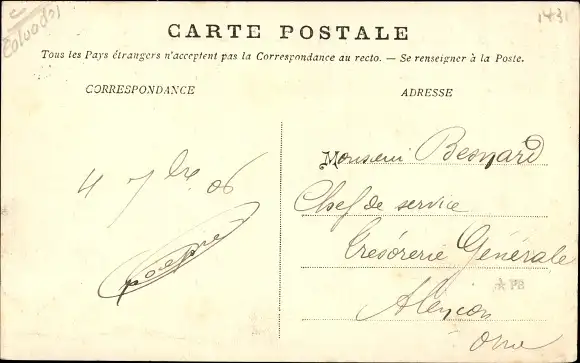 Calvados
1431
CARTE POSTALE
Tous les Pays étrangers n'acceptent pas la Correspondance au recto. — Se renseigner à la Poste.
CORRESPONDANCE
ADRESSE
4 7bre 06
Monsieur Besnard
Chef de service
Trésorerie Générale
Alençon
Orne
PB